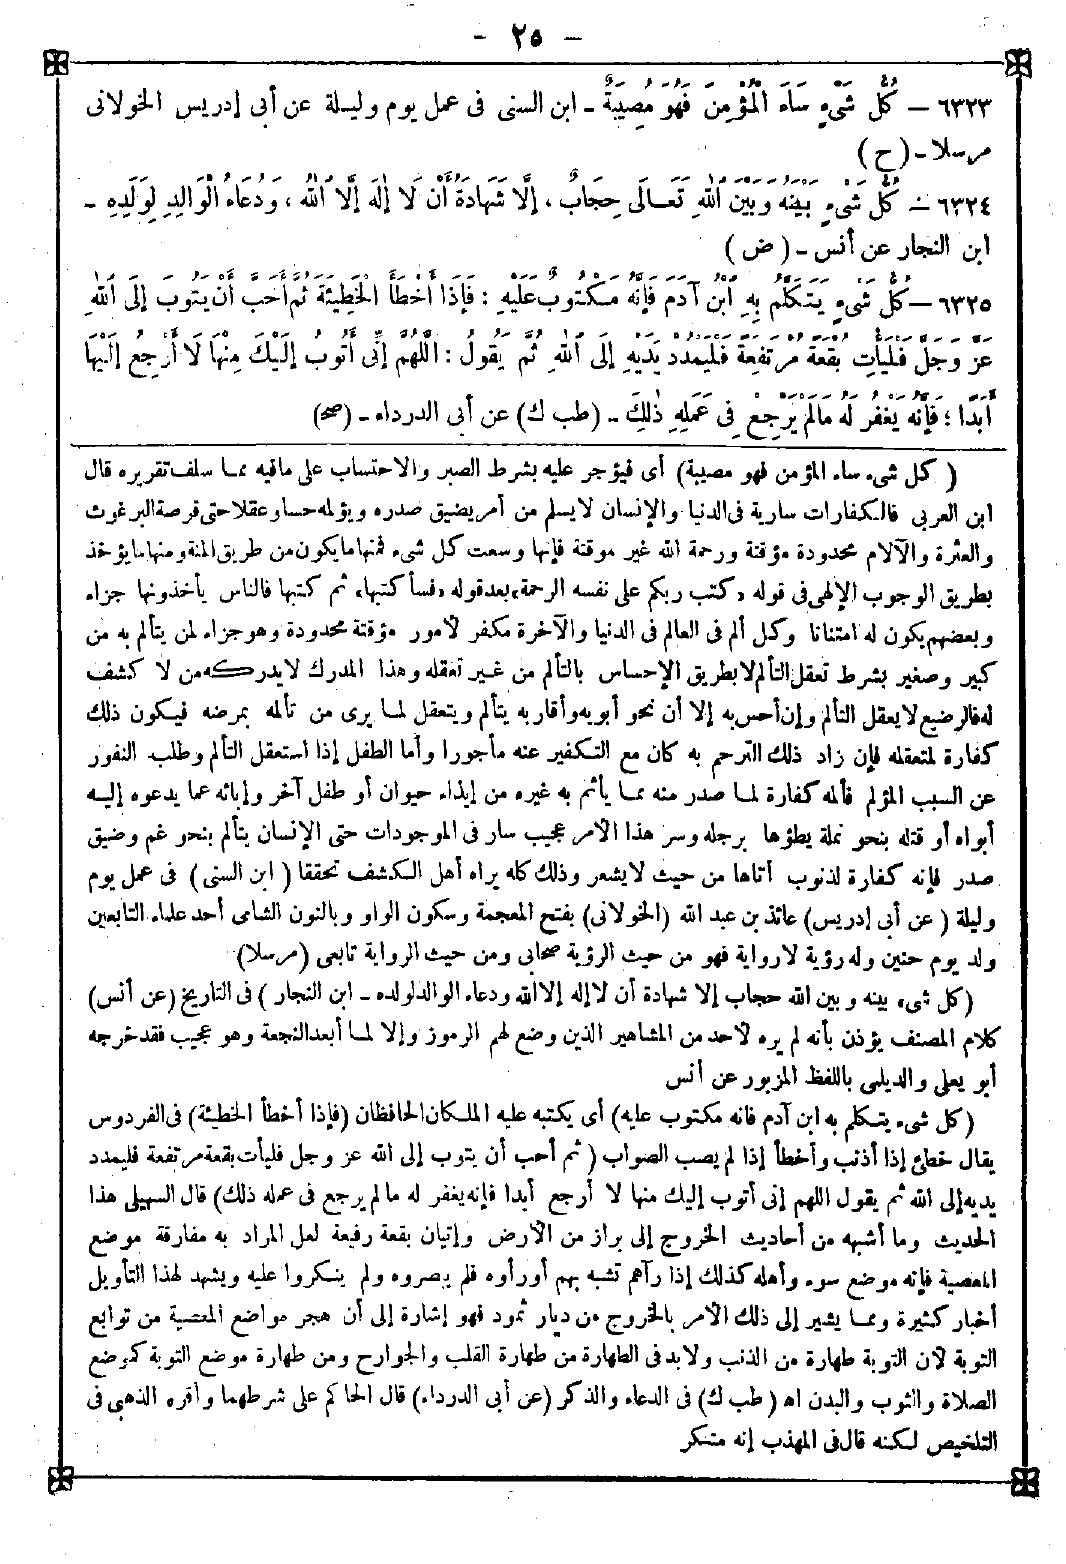 - ٢٥ -
٦٣٢٣ - كُلُّ شَيْءٍ سَاءَ الْمُؤْمِنَ فَهُوَ مُصِيبَةٌ - ابن السنى فى عمل يوم وليلة عن أبى إدريس الخولانى
مرسلا - (ح)
٦٣٢٤ - كُلُّ شَيْءٍ بَيْنَهُ وَبَيْنَ اللهِ تَعَالَى حِجَابٌ ، إِلَّا شَهَادَةُ أَنْ لَا إِلٰهَ إِلَّا اللهُ ، وَدُعَاءُ الْوَالِدِ لِوَلَدِهِ -
ابن النجار عن أنس - (ض)
٦٣٢٥ - كُلُّ شَيْءٍ يَتَكَلَّمُ بِهِ ابْنُ آدَمَ فَإِنَّهُ مَكْتُوبٌ عَلَيْهِ : فَإِذَا أَخْطَأَ الْخَطِيئَةَ ثُمَّ أَحَبَّ أَنْ يَتُوبَ إِلَى اللهِ
عَزَّ وَجَلَّ فَلْيَأْتِ بُقْعَةً مُرْتَفِعَةً فَلْيَمْدُدْ يَدَيْهِ إِلَى اللهِ ثُمَّ يَقُولُ : اللَّهُمَّ إِنِّى أَتُوبُ إِلَيْكَ مِنْهَا لَا أَرْجِعُ إِلَيْهَا
أَبَدًا ؛ فَإِنَّهُ يُغْفَرُ لَهُ مَالَمْ يَرْجِعْ فِى عَمَلِهِ ذٰلِكَ - (طب ك) عن أبى الدرداء - (صح)
(كل شىء ساء المؤمن فهو مصيبة) أى فيؤجر عليه بشرط الصبر والاحتساب على مافيه مما سلف تقريره قال
ابن العربى فالكفارات سارية فى الدنيا والإنسان لايسلم من أمر يضيق صدره ويؤلمه حسا وعقلا حتى قرصة البرغوث
والعثرة والآلام محدودة مؤقتة ورحمة الله غير موقتة فإنها وسعت كل شىء فمنها مايكون من طريق المنة ومنها مايؤخذ
بطريق الوجوب الإلهى فى قوله «كتب ربكم على نفسه الرحمة» بعد قوله «فسأكتبها» ثم كتبها فالناس يأخذونها جزاء
وبعضهم يكون له امتنانا وكل ألم فى العالم فى الدنيا والآخرة مكفر لأمور مؤقتة محدودة وهو جزاء لمن يتألم به من
كبير وصغير بشرط تعقل التألم لا بطريق الإحساس بالتألم من غير تعقله وهذا المدرك لايدركه من لا كشف
له فالرضيع لايعقل التألم وإن أحس به إلا أن نحو أبويه وأقاربه يتألم ويتعقل لما يرى من تألمه بمرضه فيكون ذلك
كفارة لمتعقله فإن زاد ذلك الترحم به كان مع التكفير عنه مأجورا وأما الطفل إذا استعقل التألم وطلب النفور
عن السبب المؤلم فألمه كفارة لما صدر منه مما يأثم به غيره من إيذاء حيوان أو طفل آخر وإبائه عما يدعوه إليه
أبواه أو قتله بنحو نملة يطؤها برجله وسر هذا الأمر عجيب سار فى الموجودات حتى الإنسان يتألم بنحو غم وضيق
صدر فإنه كفارة لذنوب أتاها من حيث لايشعر وذلك كله يراه أهل الكشف تحققا (ابن السنى) فى عمل يوم
وليلة (عن أبى إدريس) عائذ بن عبد الله (الخولانى) بفتح المعجمة وسكون الواو وبالنون الشامى أحد علماء التابعين
ولد يوم حنين وله رؤية لارواية فهو من حيث الرؤية صحابى ومن حيث الرواية تابعى (مرسلا)
(كل شىء بينه وبين الله حجاب إلا شهادة أن لا إله إلا الله ودعاء الوالد لولده - ابن النجار) فى التاريخ (عن أنس)
كلام المصنف يؤذن بأنه لم يره لأحد من المشاهير الذين وضع لهم الرموز وإلا لما أبعد النجعة وهو عجيب فقد خرجه
أبو يعلى والديلمى باللفظ المزبور عن أنس
(كل شىء يتكلم به ابن آدم فانه مكتوب عليه) أى يكتبه عليه الملكان الحافظان (فإذا أخطأ الخطيئة) فى الفردوس
يقال خطئ إذا أذنب وأخطأ إذا لم يصب الصواب (ثم أحب أن يتوب إلى الله عز وجل فليأت بقعة مرتفعة فليمدد
يديه إلى الله ثم يقول اللهم إنى أتوب إليك منها لا أرجع أبدا فإنه يغفر له ما لم يرجع فى عمله ذلك) قال السهيلى هذا
الحديث وما أشبهه من أحاديث الخروج إلى براز من الأرض وإتيان بقعة رفيعة لعل المراد به مفارقة موضع
المعصية فإنه موضع سوء وأهله كذلك إذا رآهم تشبه بهم أو رأوه فلم يبصروه ولم ينكروا عليه ويشهد لهذا التأويل
أخبار كثيرة ومما يشير إلى ذلك الأمر بالخروج من ديار ثمود فهو إشارة إلى أن هجر مواضع المعصية من توابع
التوبة لأن التوبة طهارة من الذنب ولابد فى الطهارة من طهارة القلب والجوارح ومن طهارة موضع التوبة كموضع
الصلاة والثوب والبدن اه (طب ك) فى الدعاء والذكر (عن أبى الدرداء) قال الحاكم على شرطهما وأقره الذهبى فى
التلخيص لكنه قال فى المهذب إنه منكر